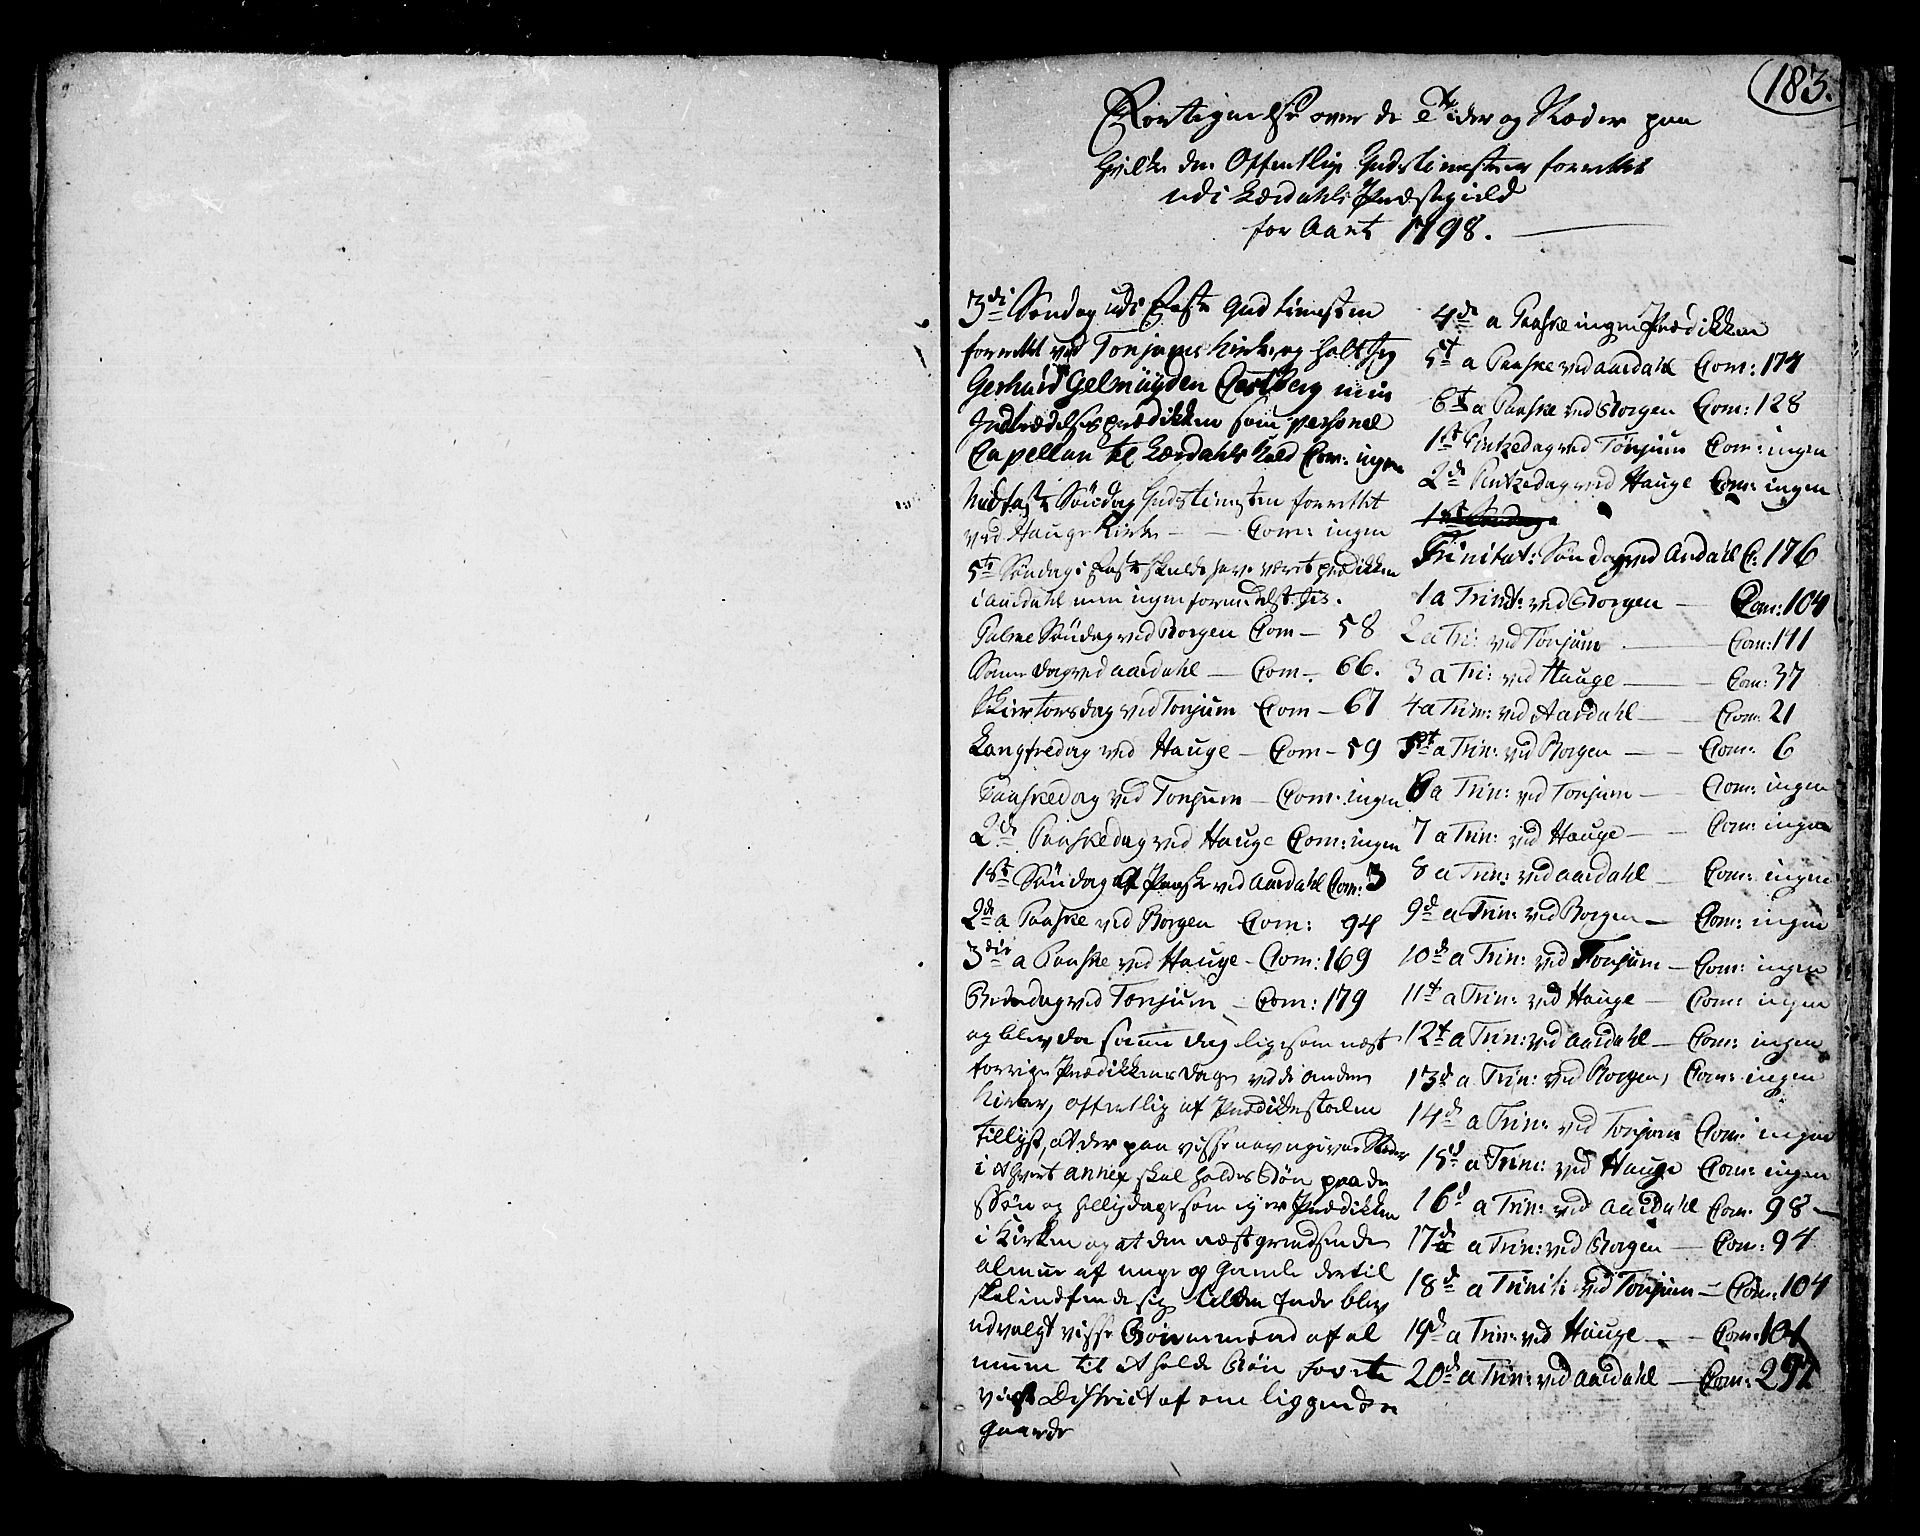 183.
Fortegnelse over de Tider og Stæder paa
hvilke den Offentlige Gudstieneste er forrettet
udi Lærdahls Præstegield
for Aaret 1798.
3di Søndag udi Faste Gudstienesten
forrettet ved Tonjums Kirke og holt Jeg
Gerhard Gelmüyden Castberg min
Indtrædelsesprædikken som personel
Capellan til Lærdahls Kald Com: ingen
Midfaste Søndag Gudstienesten forrettet
ved Hauge Kirke — Com: ingen
5te Søndag i Faste skulde have været prædikken
i Aardahl men ingen formedelst
Palme Søndag ved Borgen Com — 58
Samme dag ved Aardahl — Com — 66.
Skiertorsdag ved Tonjum Com — 67
Langfredag ved Hauge — Com — 59
Paaskedag ved Tonjum — Com: ingen
2de Paaskedag ved Hauge Com: ingen
1ste Søndag af Paaske ved Aardahl Com: 3
2de a Paaske ved Borgen Com: 94
3die a Paaske ved Hauge — Com: 169
Bededag ved Tonjum — Com: 179
og blev da samme dag ligesom næst
forrige Prædikkens Dage ved de andre
Kirker, offentlig af Prædikkestolen
tillyst, at der paa visse navngivne Stæder
i et hvert annex skal holdes Bøn paa de
Søn og Helligdage som ej er Prædikken
i Kirken og at den næst grændsende
almue af unge og Gamle dertil
skal indfinde sig til den Ende blev
udvalgt visse Bønnemænd af al
muen til at holde Bøn for et
vist District af omliggende
gaarde
4de a Paaske ingen Prædikken
5t a Paaske ved Aardahl Com: 174
6t a Paaske ved Borgen Com: 128
1st Pintzedag ved Tonjum Com: ingen
2de Pintzedag ved Hauge Com: ingen
1st Søndag
Trinitat: Søndag ved Ardahl C: 176
1 a Trinit: ved Borgen — Com: 104
2 a Tri: ved Tonjum — Com: 111
3 a Tri: ved Hauge — Com: 37
4 a Trin: ved Aardahl — Com: 21
5t a Trin: ved Borgen — Com: 6
6 a Trin: ved Tonjum — Com: ingen
7 a Trin: ved Hauge — Com: ingen
8 a Trin: ved Aardahl — Com: ingen
9d a Trin: ved Borgen — Com: ingen
10d a Trin: ved Tonjum — Com: ingen
11t a Trin: ved Hauge — Com: ingen
12t a Trin: ved Aardahl — Com: ingen
13d a Trin: ved Borgen, Com: ingen
14d a Trin: ved Tonjum Com: ingen
15d a Trin: ved Hauge Com: ingen
16d a Trin: ved Aardahl Com: 98 —
17de a Trin: ved Borgen — Com: 94
18d a Trinit: ved Tonjum — Com: 104
19d a Trin: ved Hauge — Com: 101
20d a Trin: ved Aardahl — Com: 297